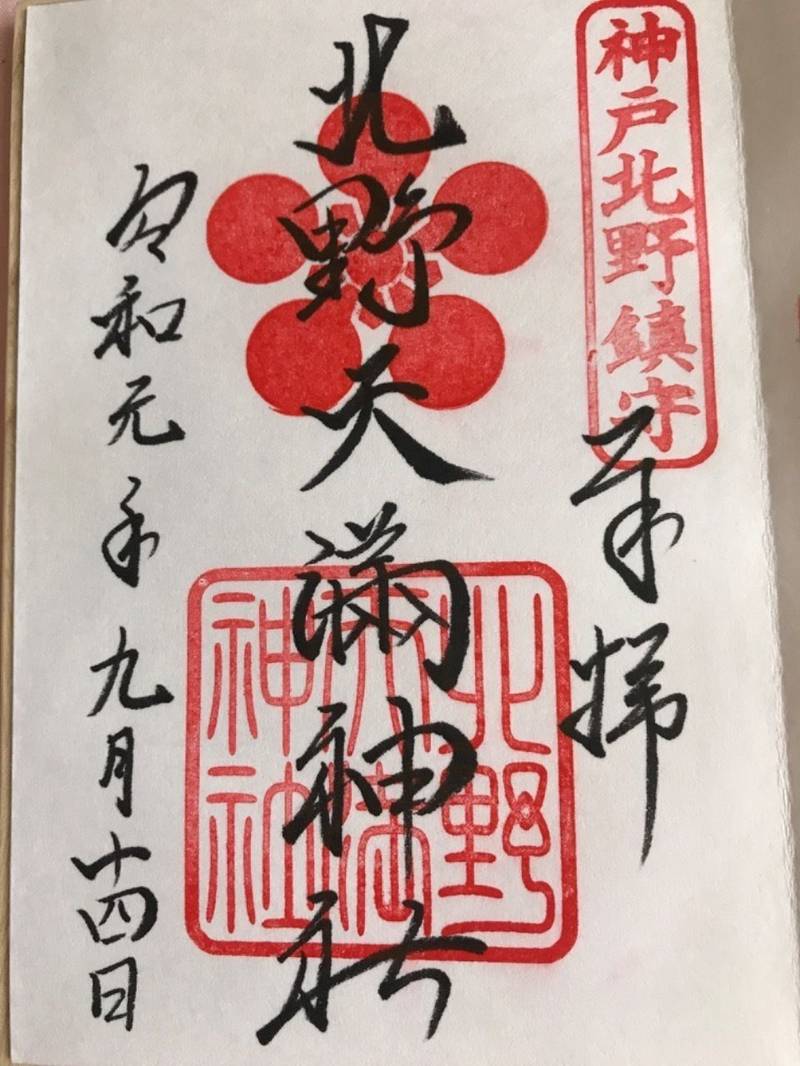 神戸北野鎮守
奉拝
北野天満神社
北野
天満
神社
令和元年九月十四日